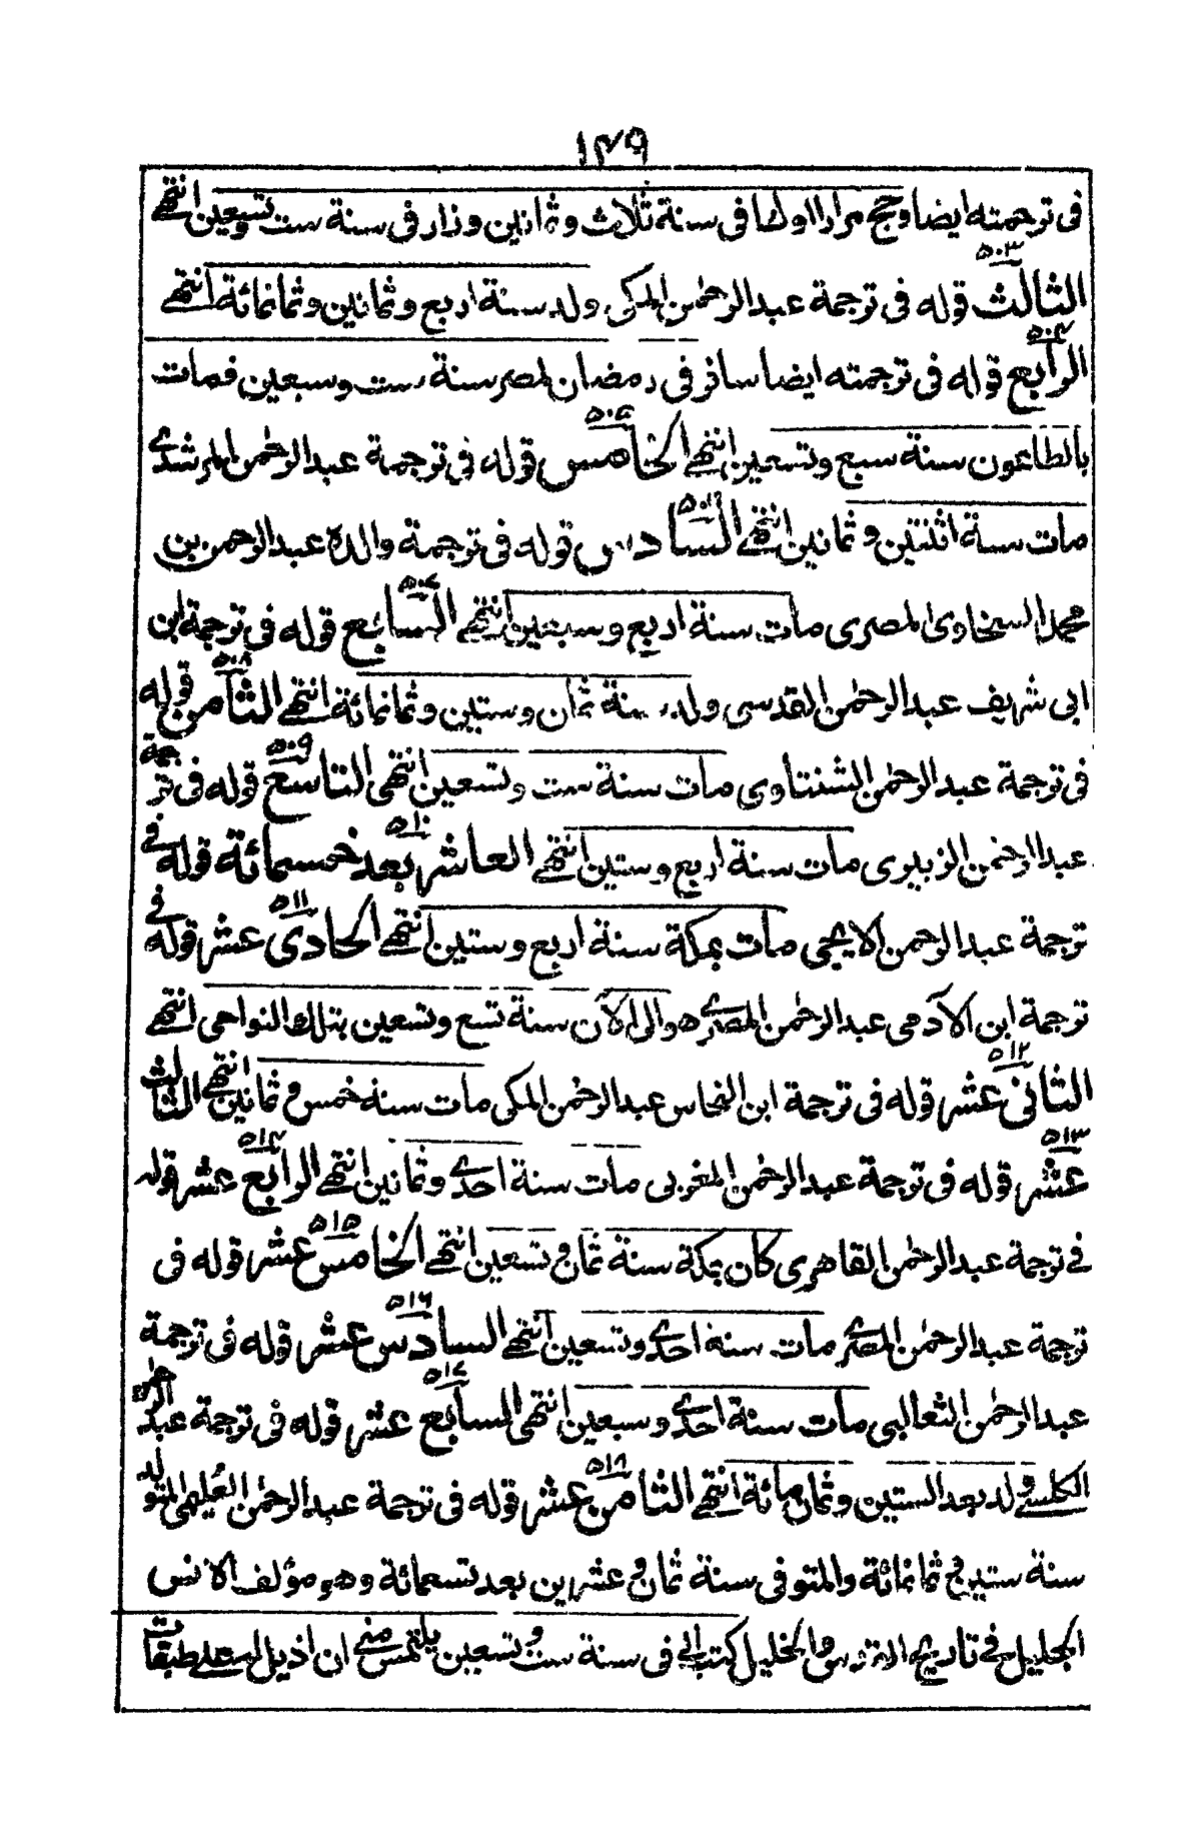 ١٣٩
فى ترجمته ايضا وحج مرارا اولها فى سنة ثلاث وثمانين وزار فى سنة ست وتسعين انتهى
٥٠٣
الثالث قوله فى ترجمة عبد الرحمٰن المكى ولد سنة اربع وثمانين وثمانمائة انتهى
٥٠٤
الرابع قوله فى ترجمته ايضا سافر فى رمضان لمصر سنة ست وسبعين فمات
٥٠٥
بالطاعون سنة سبع وتسعين انتهى الخامس قوله فى ترجمة عبد الرحمٰن المرشدى
٥٠٦
مات سنة اثنتين وثمانين انتهى السادس قوله فى ترجمة والده عبد الرحمن بن
٥٠٧
محمد السخاوى المصرى مات سنة اربع وسبعين انتهى السابع قوله فى ترجمة ابن
٥٠٨
ابى شريف عبد الرحمٰن القدسى ولد سنة ثمان وستين وثمانمائة انتهى الثامن قوله
٥٠٩
فى ترجمة عبد الرحمٰن الشنتاوى مات سنة ست وتسعين انتهى التاسع قوله فى ترجمة
٥١٠
عبد الرحمن الزبيرى مات سنة اربع وستين انتهى العاشر بعد خمسمائة قوله فى
٥١١
ترجمة عبد الرحمن الايجى مات بمكة سنة اربع وستين انتهى الحادى عشر قوله فى
ترجمة ابن الآدمى عبد الرحمٰن المصرى هو الى الآن سنة تسع وتسعين بتلك النواحى انتهى
٥١٢
الثانى عشر قوله فى ترجمة ابن النحاس عبد الرحمٰن المكى مات سنة خمس و ثمانين انتهى الثالث
٥١٣ ٥١٤
عشر قوله فى ترجمة عبد الرحمٰن المغربى مات سنة احدى وثمانين انتهى الرابع عشر قوله
٥١٥
فى ترجمة عبد الرحمٰن القاهرى كان بمكة سنة ثمان و تسعين انتهى الخامس عشر قوله فى
٥١٦
ترجمة عبد الرحمٰن المصرى مات سنة احدى وتسعين انتهى السادس عشر قوله فى ترجمة
٥١٧
عبد الرحمٰن الثعالبى مات سنة احدى وسبعين انتهى السابع عشر قوله فى ترجمة عبد الرحمن
٥١٨
الكلسى ولد بعد الستين وثمان مائة انتهى الثامن عشر قوله فى ترجمة عبد الرحمٰن العُليمى المتولد
سنة ستين و ثمانمائة والمتوفى سنة ثمان و عشرين بعد تسعمائة وهو مؤلف الانس
الجليل فى تاريخ القدس والخليل كتب الى فى سنة ست و تسعين يلتمس منى ان اذيل له على طبقات